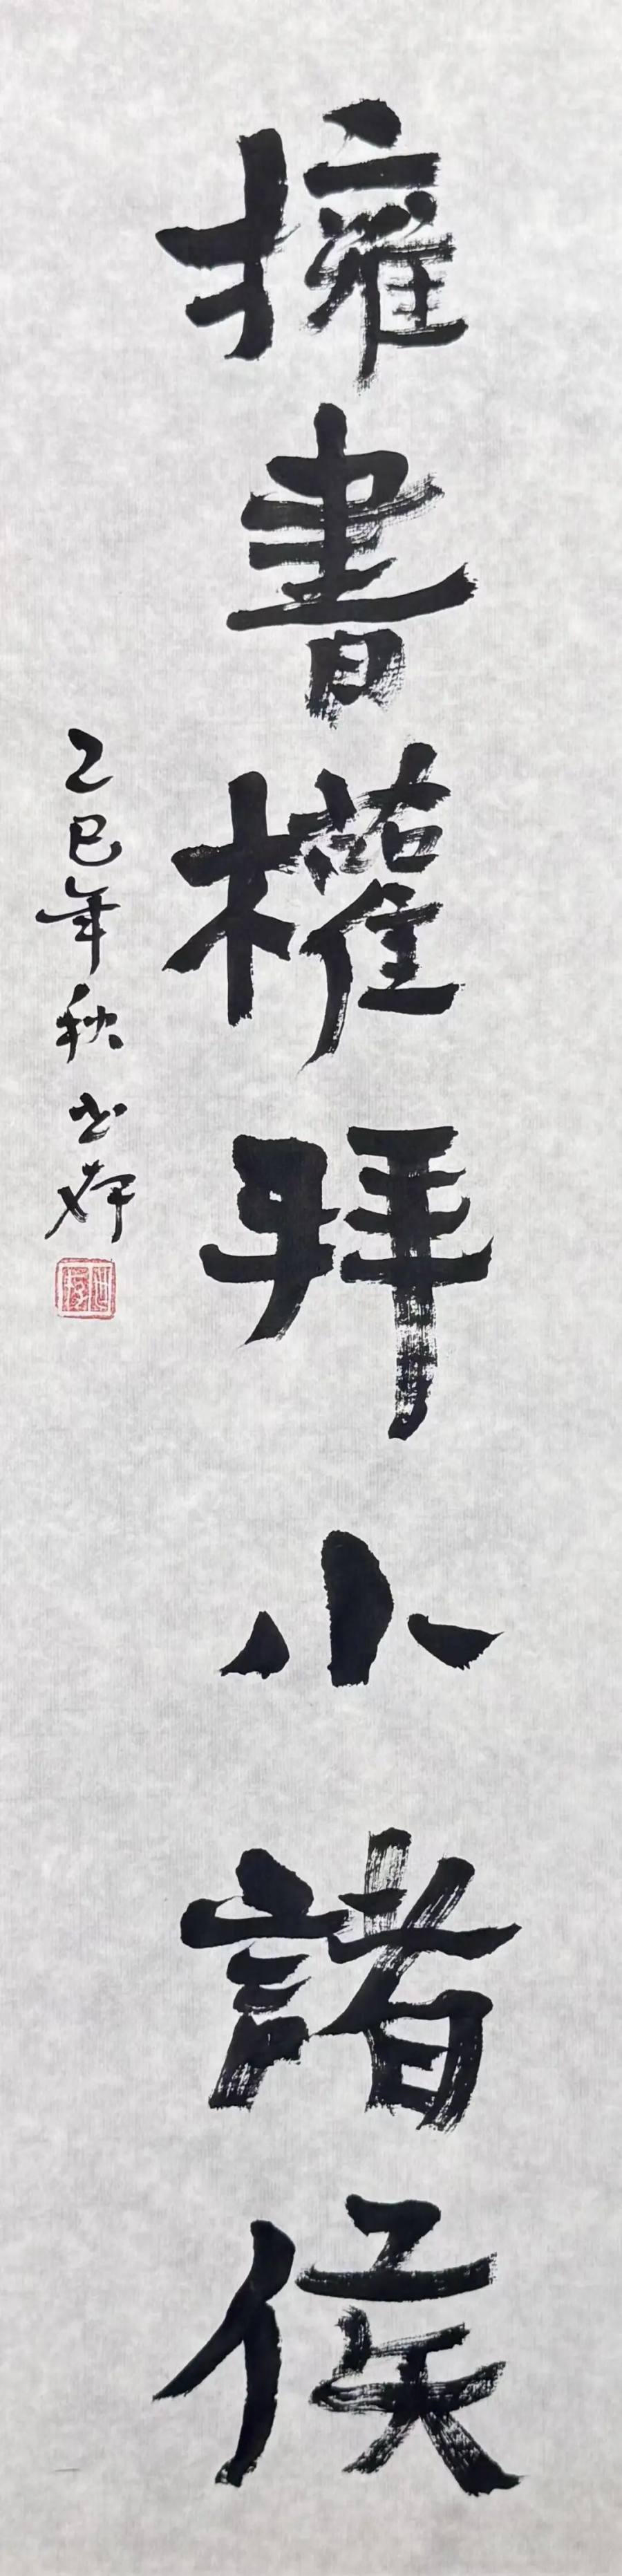 擁書權拜小諸侯
乙巳年秋